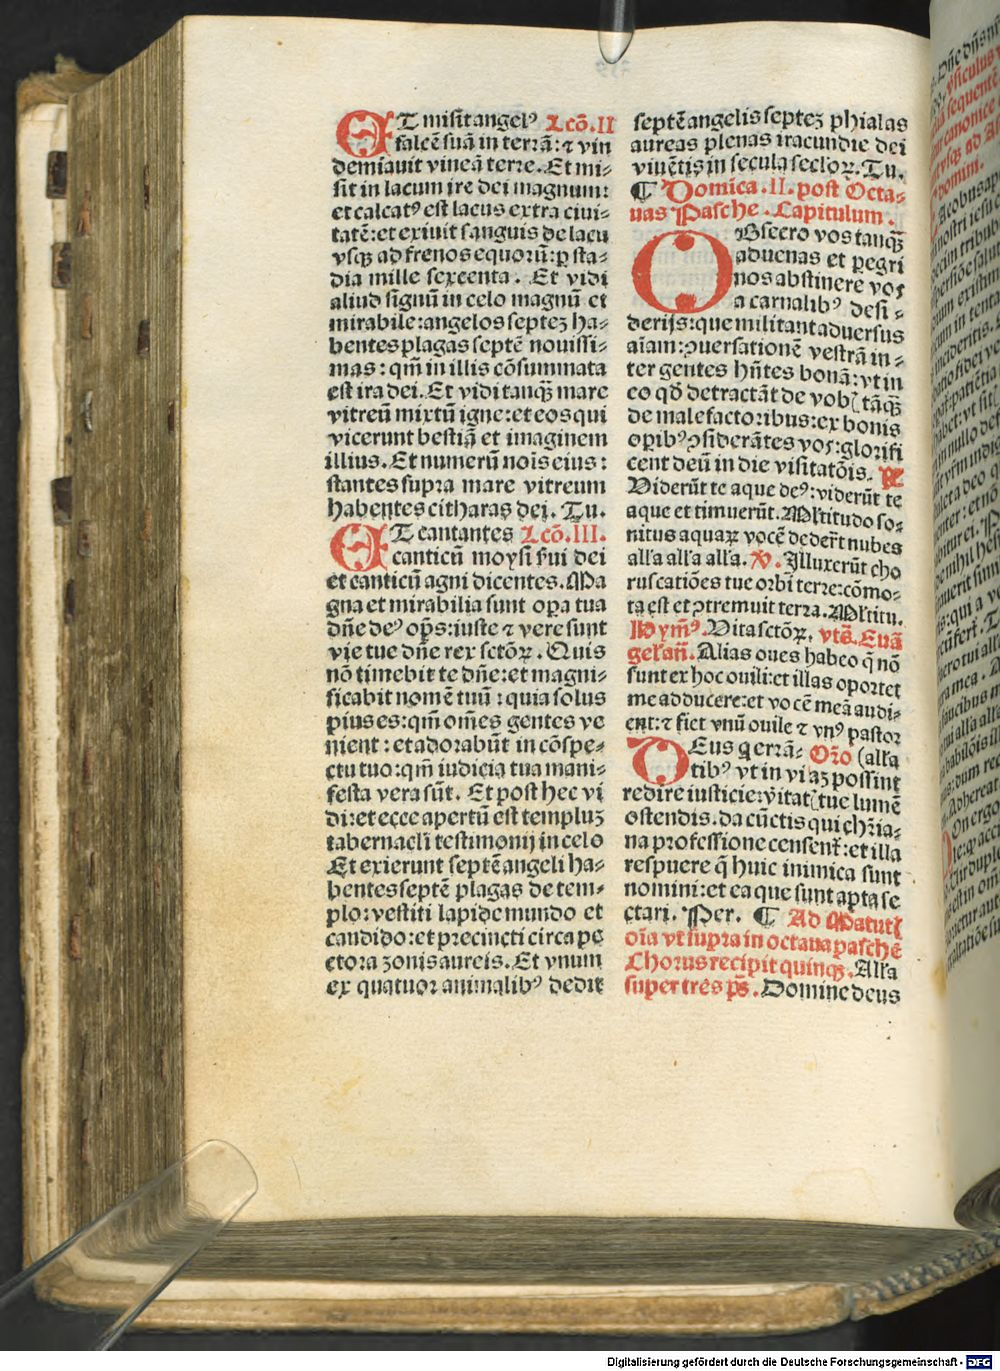 ET misit̄ angelꝰ Lcō. II
falcē suā in terrā: ⁊ vin
demiauit vineā terre. Et mi-
sit in lacum ire dei magnum:
et calcatꝰ est lacus extra ciui-
tatē: et exiuit sanguis de lacu
vsqꝫ ad frenos equorū: ꝑ sta-
dia mille sexcenta. Et vidi
aliud signū in celo magnū et
mirabile: angelos septeꝫ ha-
bentes plagas septē nouissi-
mas: qm̄ in illis cōsummata
est ira dei. Et vidi tanqꝫ mare
vitreū mixtū igne: et eos qui
vicerunt bestiā et imaginem
illius. Et numerū nois eius:
stantes supra mare vitreum
habentes citharas dei. Tu.
ET cantantes Lcō. III.
canticū moysi sui dei
et canticū agni dicentes. Ma
gna et mirabilia sunt oꝑa tua
dn̄e deꝰ op̄s: iuste ⁊ vere sunt
vie tue dn̄e rex sctōꝝ. Quis
nō timebit te dn̄e: et magni-
ficabit nomē tuū: quia solus
pius es: qm̄ om̄es gentes ve
nient: et adorabūt in cōspe-
ctu tuo: qm̄ iudicia tua mani-
festa vera sūt. Et post hec vi
di: et ecce apertū est templuꝫ
tabernacl̄i testimonij in celo
Et exierunt septē angeli ha-
bentes septē plagas de tem-
plo: vestiti lapide mundo et
candido: et precincti circa pe
ctora zonis aureis. Et vnum
ex quatuor animalibꝰ dedit
septē angelis septeꝫ phialas
aureas plenas iracundie dei
viuētis in secula seclorꝝ. Tu.
¶ Domica. II. post Octa-
uas Pasche. Capitulum.
OBsecro vos tanqꝫ
aduenas et ꝑegri
nos abstinere vos
a carnalibꝰ desi-
derijs: que militant aduersus
aīam: ꝯuersationē vestrā in-
ter gentes hn̄tes bonā: vt in
eo qd̄ detractāt de vob tāqꝫ
de malefactoribus: ex bonis
oꝑibꝰ ꝯsiderātes vos: glorifi
cent deū in die visitatōis. ℟
Viderūt te aque deꝰ: viderūt te
aque et timuerūt. Mltitudo so-
nitus aquaꝝ vocē dedert̄ nubes
alla alla alla. ℣. Illuxerūt cho
ruscatiōes tue orbi terre: cōmo-
ta est et ꝯtremuit terra. Mltitu.
Hymꝰ. Vita sctōꝝ. vts̄. Euā
gel'an̄. Alias oues habeo q̄ nō
sunt ex hoc ouili: et illas oportet
me adducere: et vocē meā audi-
ent: ⁊ fiet vnū ouile ⁊ vnꝰ pastor
DEus q errā- Or̄o (alla
tibꝰ vt in viaꝫ possint
redire iusticie: v̄itat tue lumē
ostendis. da cūctis qui chr̄ia-
na professione censent̄: et illa
respuere q̄ huic inimica sunt
nomini: et ea que sunt apta se
ctari. Per. ¶ Ad Matut
oīa vt supra in octaua paschē
Chorus recipit quinqꝫ. Alla
super tres p̄s. Domine deus
Digitalisierung gefördert durch die Deutsche Forschungsgemeinschaft - DFG